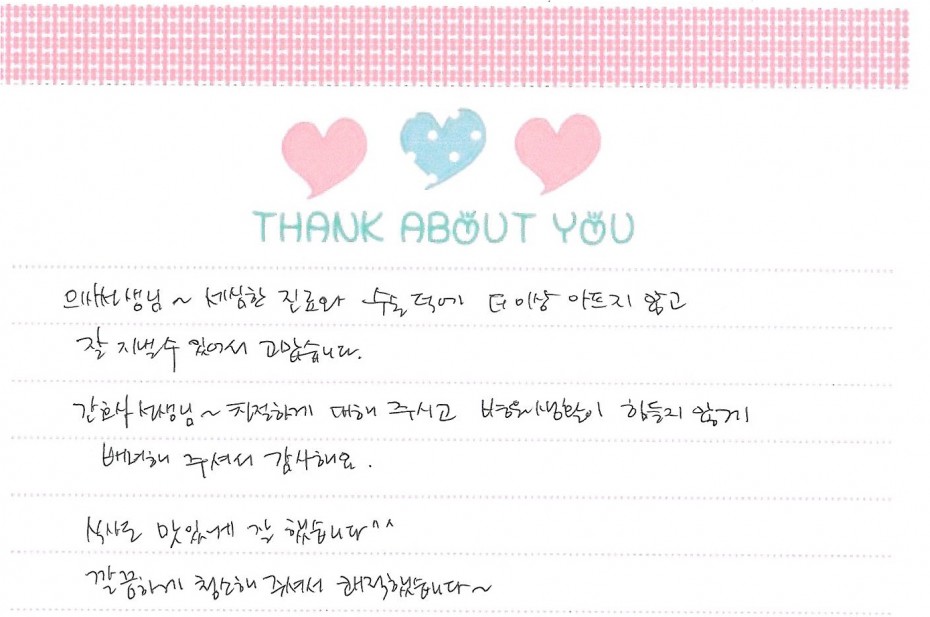 THANK ABOUT YOU
의사선생님 ~ 세심한 진료와 수술 덕에 더이상 아프지 않고
잘 지낼수 있어서 고맙습니다.
간호사 선생님 ~ 친절하게 대해 주시고 병원생활이 힘들지 않게
배려해 주셔서 감사해요.
식사도 맛있게 잘 했습니다^^
깔끔하게 청소해 주셔서 쾌적했습니다~